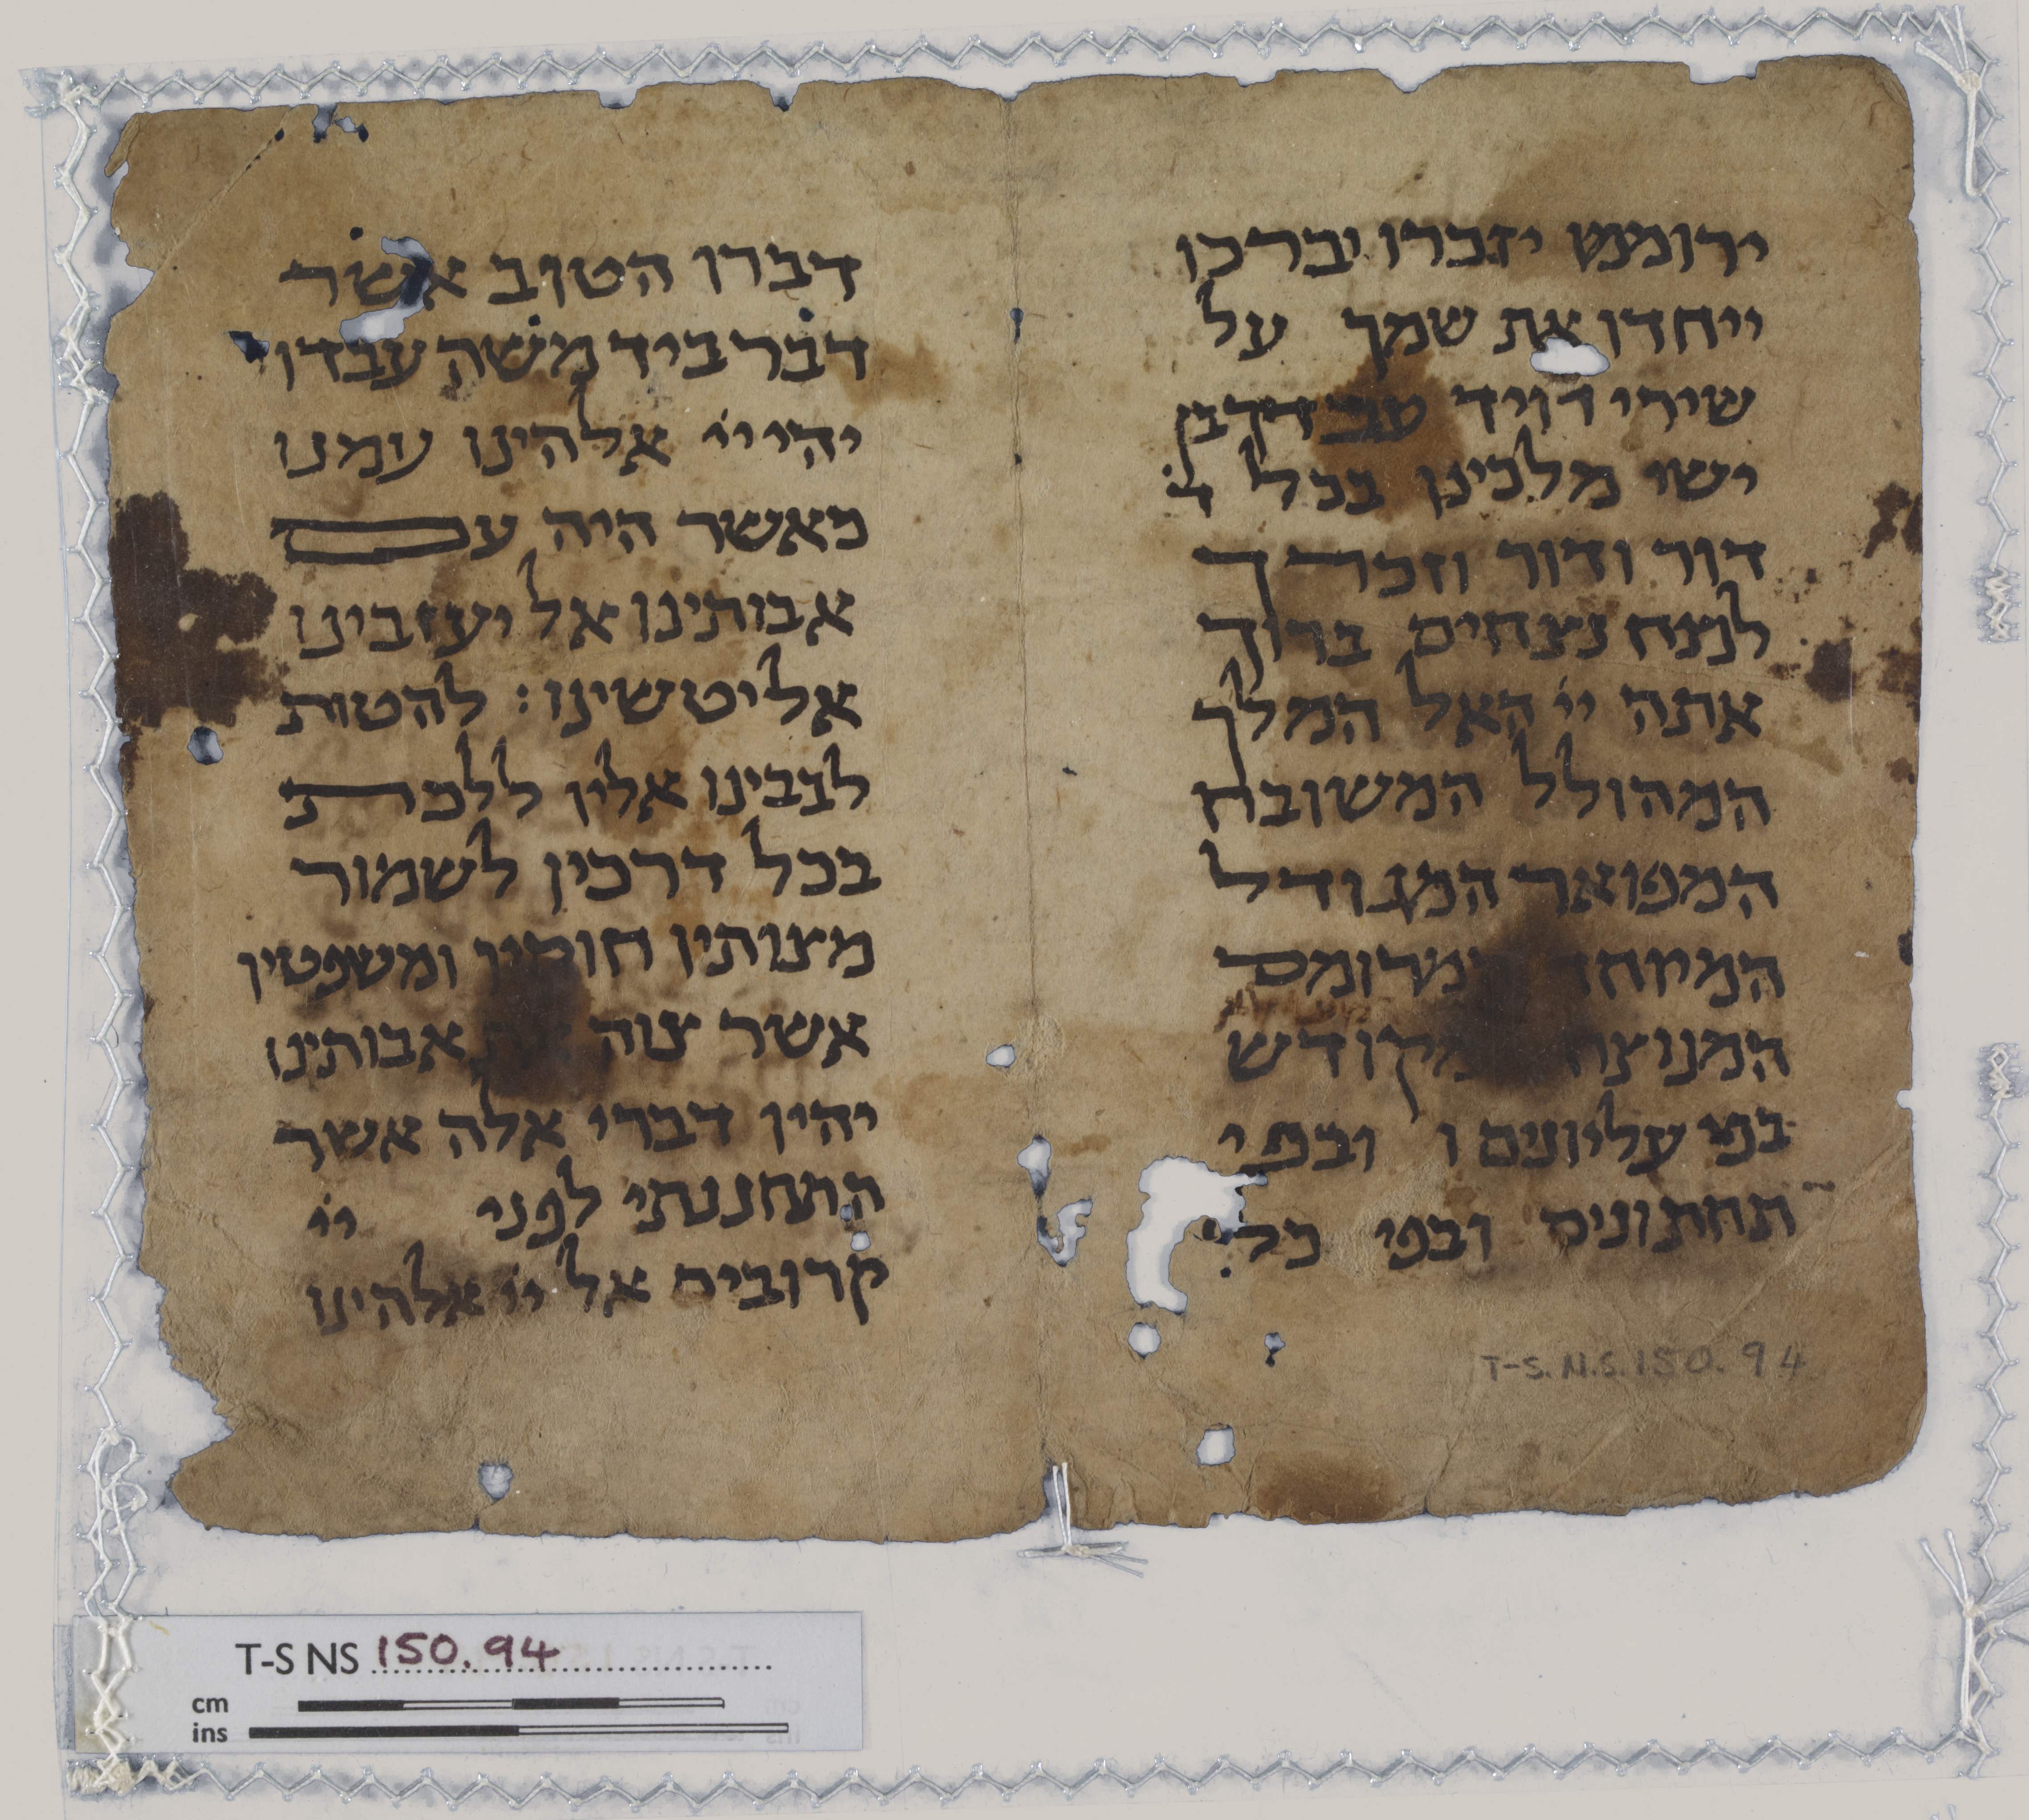 ירוממו יזכרו יברכו
ייחדו את שמך על
שירי דויד עבדך בן
ישי מלכינו בכל ד
דור ודור וזכרך
לנצח נצחים ברוך
אתה ייי האל המלך
המהולל המשובח
המפואר המגודל
המיוחד המרומם
המנוצח המקודש
בפי עליונים ובפי
תחתונים ובפי כל
דברו הטוב אשר
דבר ביד משה עבדו
יהי ייי אלהינו עמנו
כאשר היה עם
אבותינו אל יעזבינו
אל יטשינו: להטות
לבבינו אליו ללכת
בכל דרכיו לשמור
מצותיו חוקיו ומשפטיו
אשר צוה את אבותינו
יהיו דברי אלה אשר
התחננתי לפני ייי
קרובים אל ייי אלהינו
T-S. N.S. 150. 94
T-S NS 150.94
cm
ins